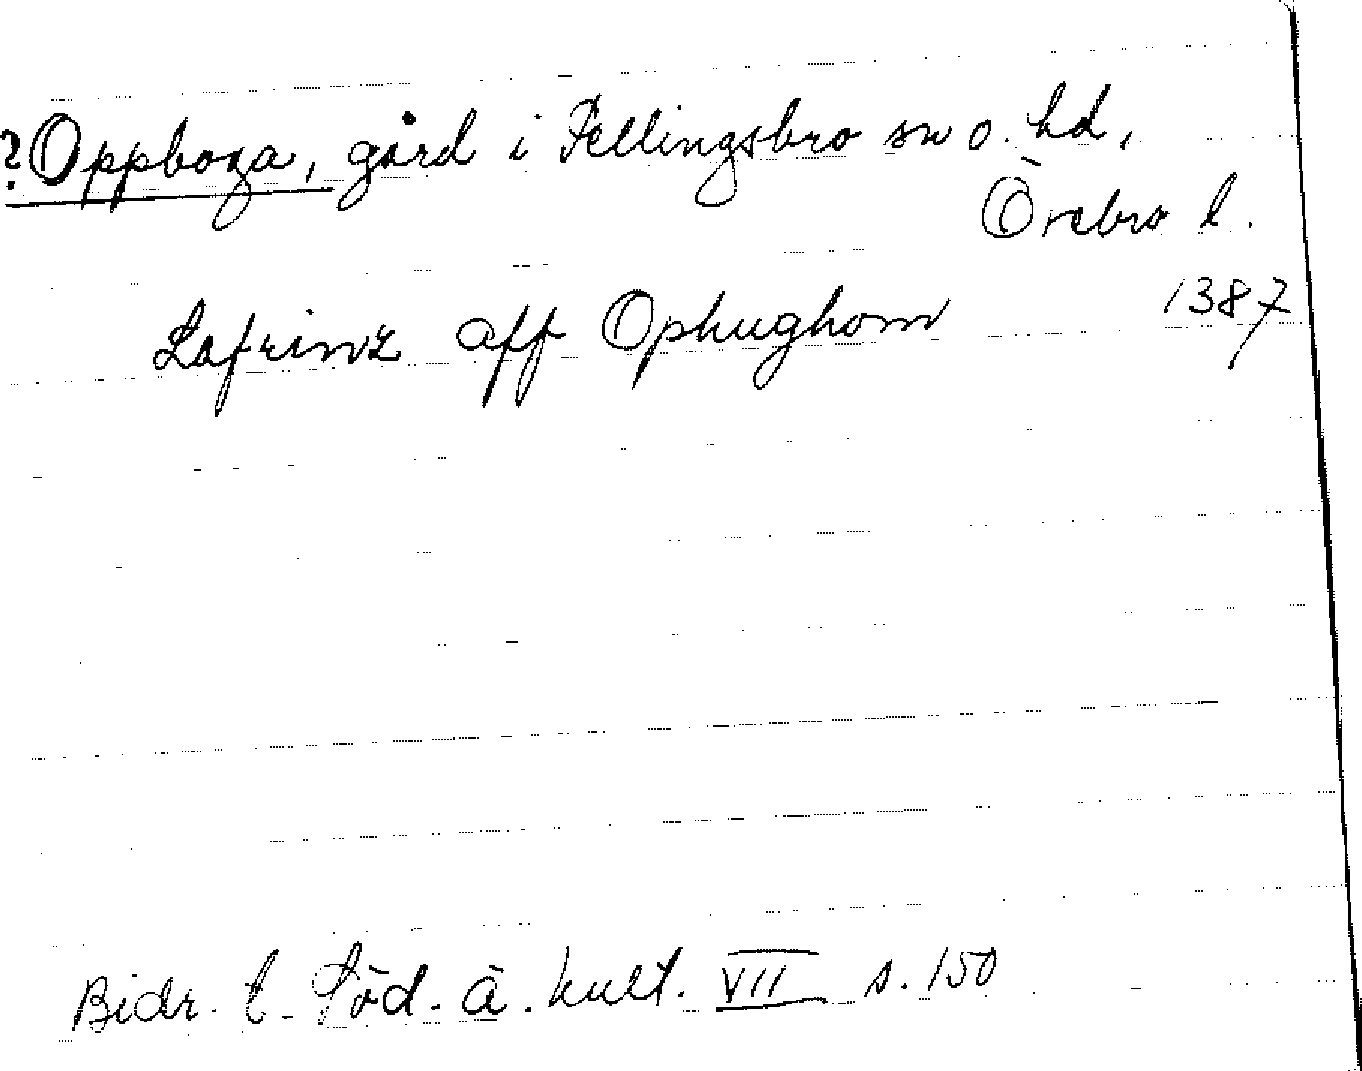 ? Oppboga, gård i Fellingsbro sn o. hd,
Örebro l.
Lafrinz aff Ophughom 1387
Bidr. t. Söd. ä. kult. VII s. 150